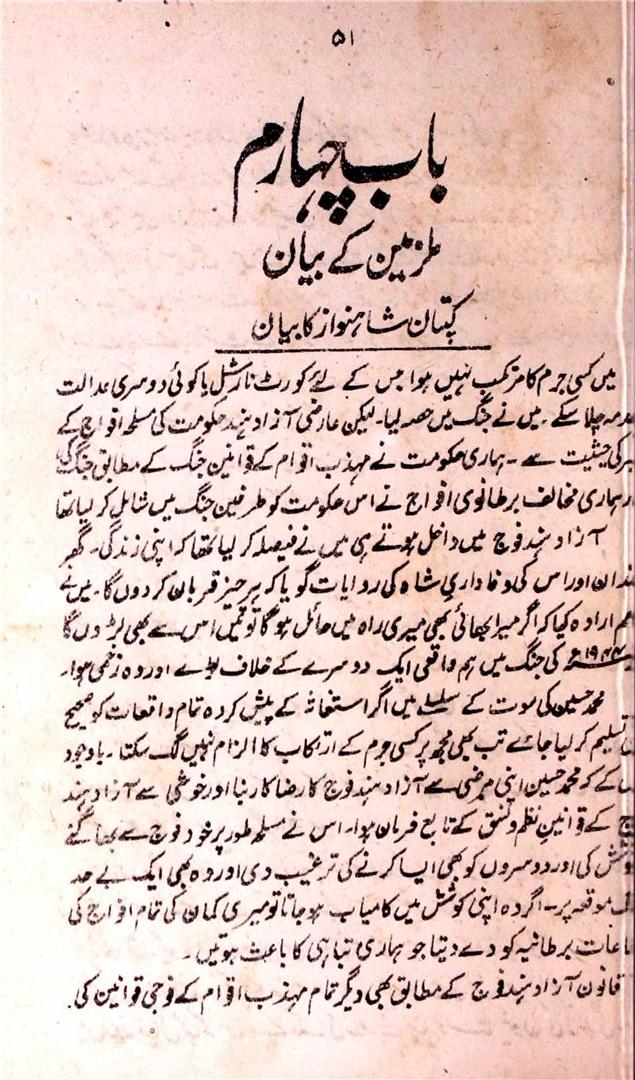 ۵۱
باب چہارم
ملزمین کے بیان
کپتان شاہنواز کا بیان
میں کسی جرم کا مرتکب نہیں ہوا جس کے لئے کورٹ مارشل یا کوئی دوسری عدالت
چلا سکے۔ میں نے جنگ میں حصہ لیا۔ لیکن عارضی آزاد ہند حکومت کی مسلح افواج کے
کی حیثیت سے۔ ہماری حکومت نے مہذب اقوام کے قوانین جنگ کے مطابق جنگ کی
ہماری مخالف برطانوی افواج نے اس حکومت کو طرفین جنگ میں شامل کر لیا تھا
آزاد ہند فوج میں داخل ہوتے ہی میں نے فیصلہ کر لیا تھا کہ اپنی زندگی۔ گھر
اور اس کی وفاداریِ شاہ کی روایات گویا کہ ہر چیز قربان کر دوں گا۔ میں نے
ارادہ کیا کہ اگر میرا بھائی بھی میری راہ میں حائل ہو گا تو میں اس سے بھی لڑوں گا
۱۹۴۴ء کی جنگ میں ہم واقعی ایک دوسرے کے خلاف لڑے اور وہ زخمی ہوا۔
محمد حسین کی موت کے سلسلے میں اگر استغاثہ کے پیش کردہ تمام واقعات کو صحیح
تسلیم کر لیا جائے تب بھی مجھ پر کسی جرم کے ارتکاب کا الزام نہیں لگ سکتا۔ باوجود
کے کہ محمد حسین اپنی مرضی سے آزاد ہند فوج کا رضا کار بنا اور خوشی سے آزاد ہند
کے قوانین نظم و نسق کے تابع فرمان ہوا۔ اس نے مسلح طور پر خود فوج سے بھاگنے
کی اور دوسروں کو بھی ایسا کرنے کی ترغیب دی اور وہ بھی ایک بے حد
موقعہ پر۔ اگر وہ اپنی کوشش میں کامیاب ہو جاتا تو میری کمان کی تمام افواج کی
برطانیہ کو دے دیتا جو ہماری تباہی کا باعث ہوتیں۔
قانون آزاد ہند فوج کے مطابق بھی دیگر تمام مہذب اقوام کے فوجی قوانین کی